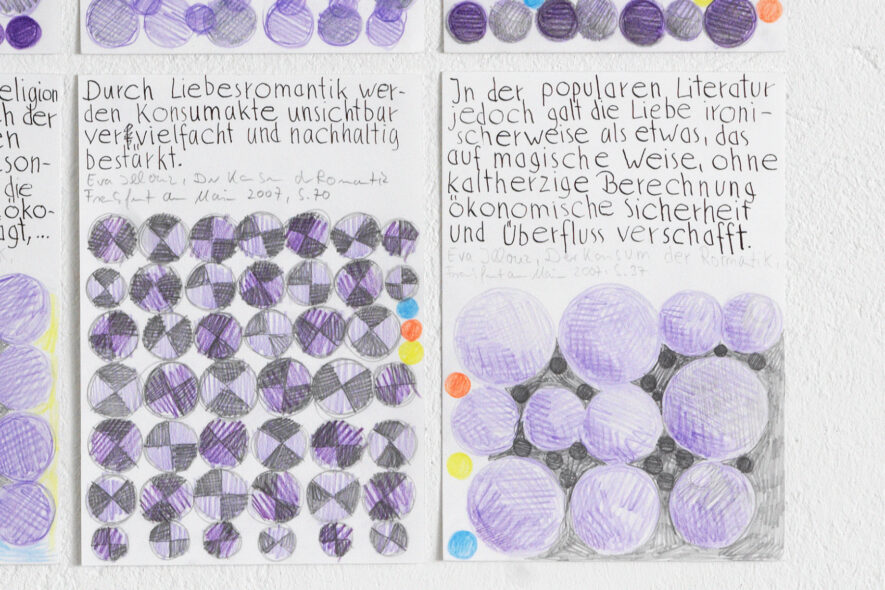 eligion
h der
en
son-
die
öko-
agt,...
Durch Liebesromantik wer-
den Konsumakte unsichtbar
vervielfacht und nachhaltig
bestärkt.
Eva Illouz, Der Konsum d. Romantik
Frankfurt am Main 2007, S.70
In der popularen Literatur
jedoch galt die Liebe ironi-
scherweise als etwas, das
auf magische Weise, ohne
kaltherzige Berechnung
ökonomische Sicherheit
und Überfluss verschafft.
Eva Illouz, Der Konsum der Romatik,
Frankfurt am Main 2007, S.37